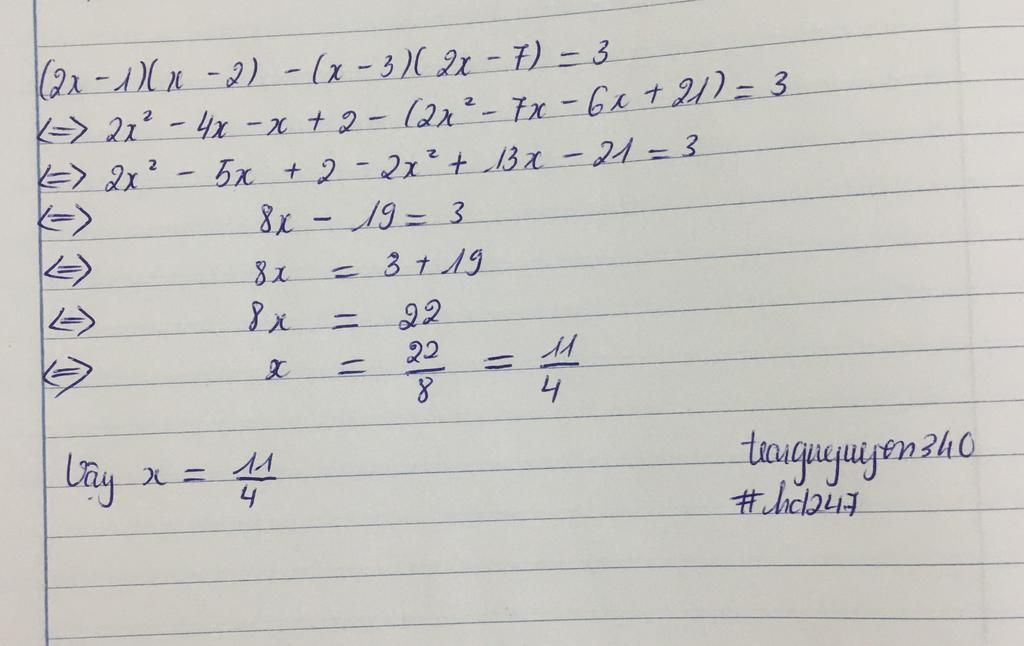 (2x - 1)(x - 2) - (x - 3)(2x - 7) = 3
<=> 2x² - 4x - x + 2 - (2x² - 7x - 6x + 21) = 3
<=> 2x² - 5x + 2 - 2x² + 13x - 21 = 3
<=> 8x - 19 = 3
<=> 8x = 3 + 19
<=> 8x = 22
<=> x = 22/8 = 11/4
Vậy x = 11/4
#hd247